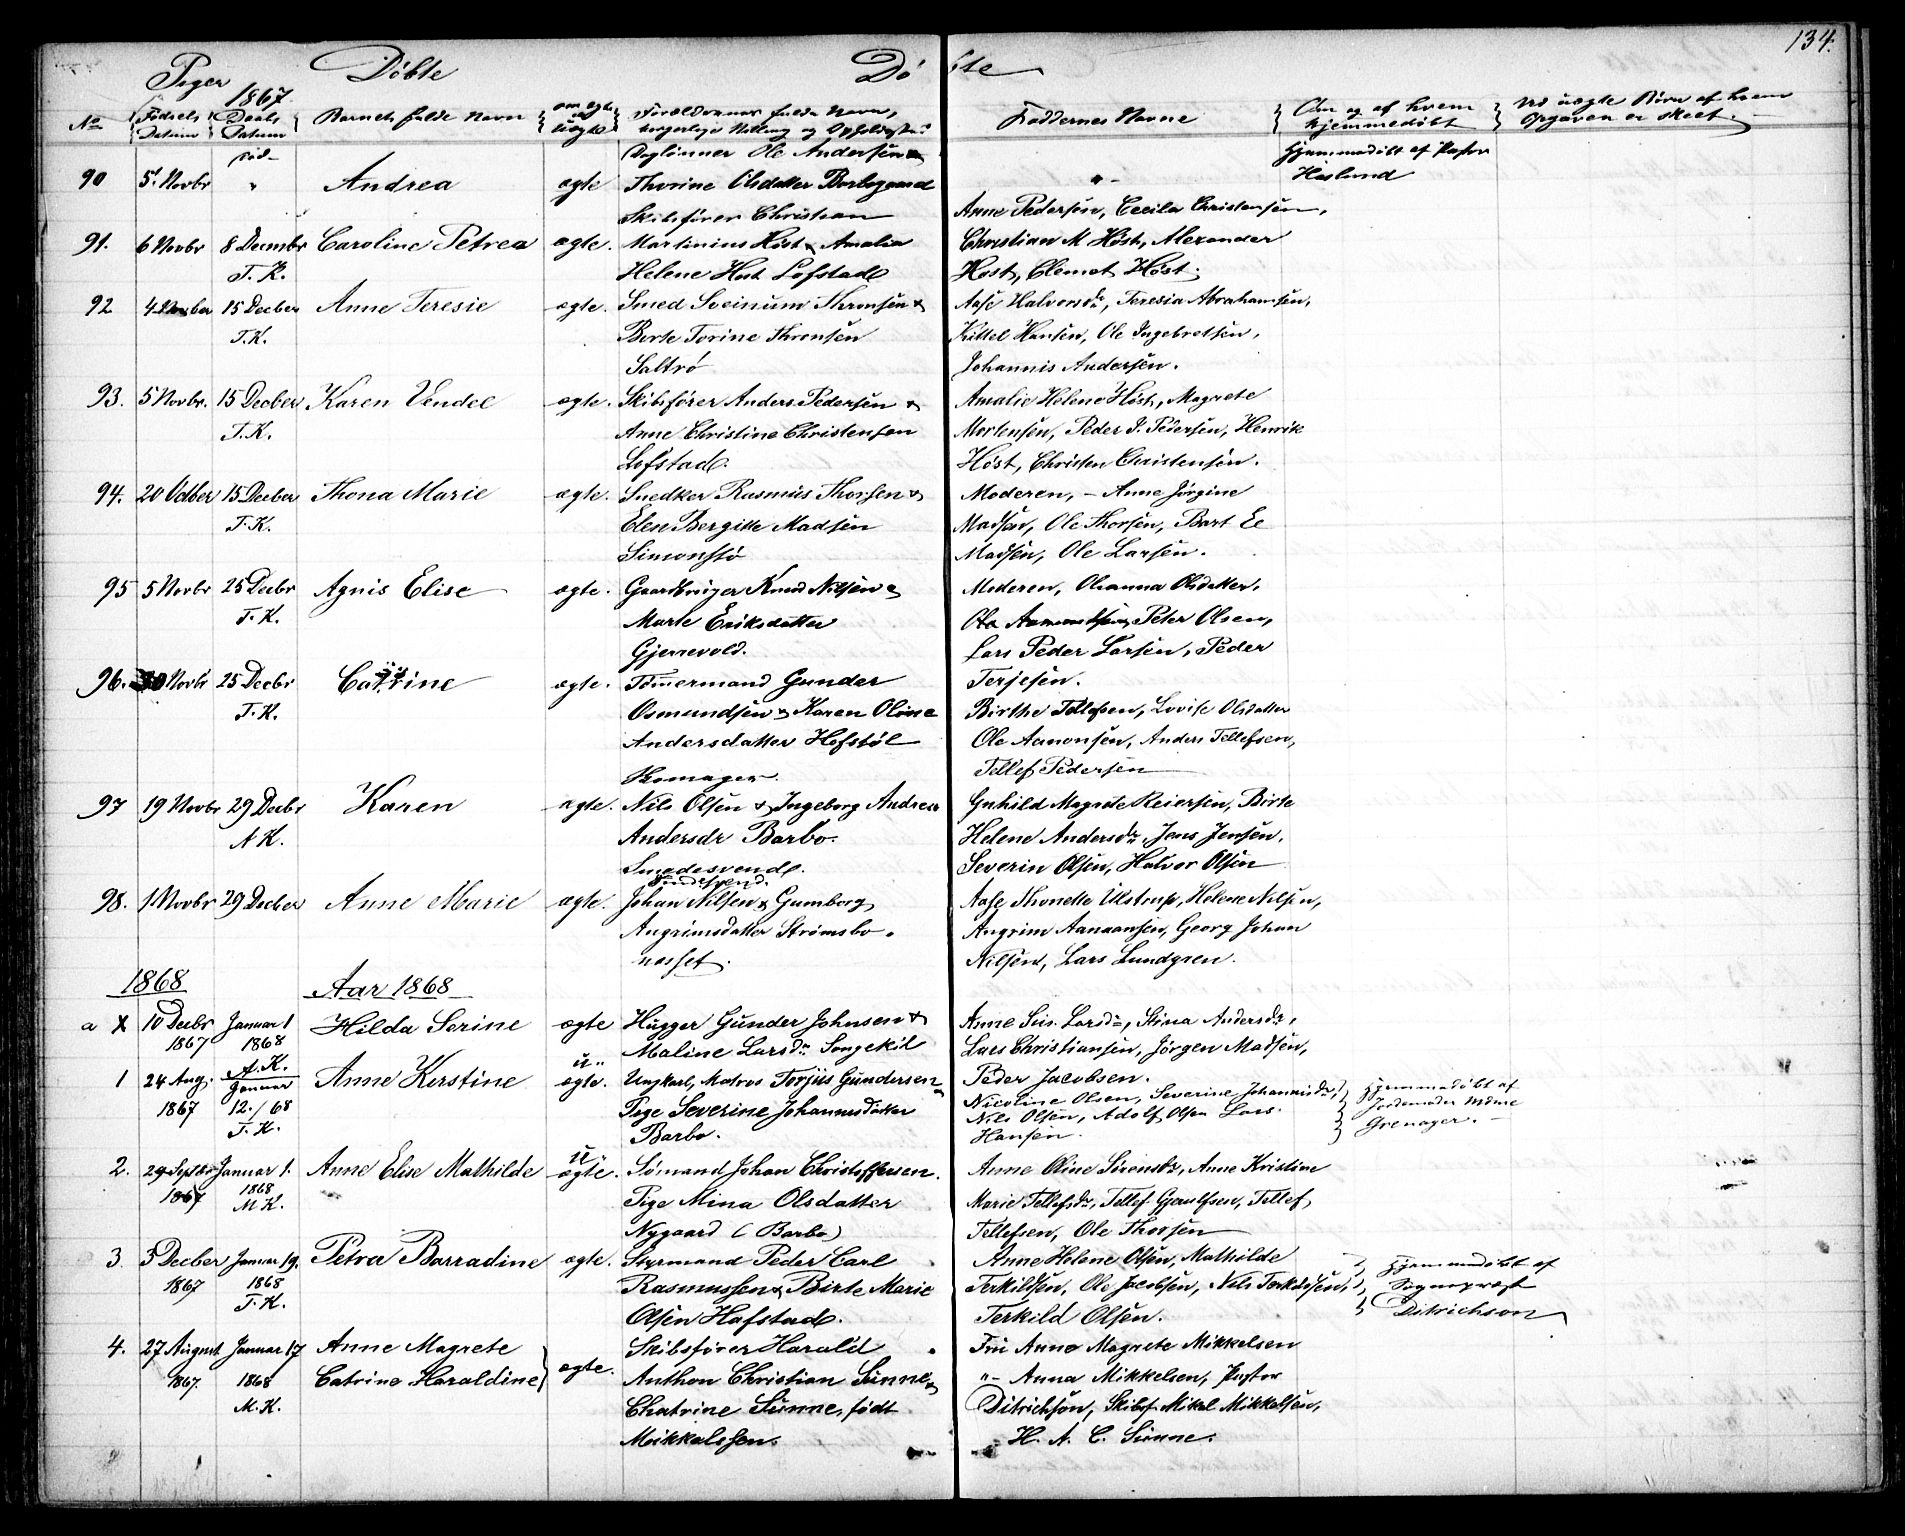 134.
Piger Døbte Døbte
1867
No Fødsels Datum Daabs Datum Barnets fulde Navn om ægte od uægte Forældrenes fulde Navn, borgerlige Stilling og Opholdssted Faddernes Navne Om og af hvem hjemmedøbt Ved uægte Børn af hvem Opgaven er skeet.
Daglønner Ole Andersen & Hjemmedøbt af Pastor
90 5' Novbr " Andrea ægte Thorine Olsdatter "- Haslund
Skibsfører Christian Anne Pedersen, Cecila Christensen,
91. 6 Novbr 8 Decmbr Caroline Petrea ægte. Martinius Høst & Amalia Christian M Høst, Alexander
T. K. Helene Høst Lofstad Høst, Clemet Høst.
92 15 Decber Anne Teresie ægte. Smed Sveinum Thronsen & Aase Halvorsdr, Teresia Abrahamsen,
T.K. Berte Torine Thronsen Kittel Hansen, Ole Ingebretsen,
Saltrø Johannis Andersen.
93. 5 Novbr. 15 Decber Karen Vendel ægte. Skibsfører Anders Pedersen & Amalie Helene Høst, Magrete
T.K. Anne Christine Christensen Mortensen, Peder P. Pedersen, Henrik
Lofstad. Høst, Christen Christensen.
94. 20 Octber 15 Decber Thona Marie ægte. Snedker Rasmus Thorsen & Moderen, - Anne Jørgine
T.K. Elen Bergitte Madsen Madsen, Ole Thorsen, Bart
Simonstø Madsen, Ole Larsen.
95 5 Novbr 25 Decbr Agnis Elise ægte. Gaardbruger Knud Nilsen & Moderen, Olianna Olsdatter,
T.K. Marte Eriksdatter Peter Olsen,
Gjerrevold. Lars Peder Larsen, Peder
96. Novbr 25 Decbr Catrine ægte. Tømermand Gunder Terjesen.
T.K. Osmundsen & Karen Oline Birthe Tellefsen, Lovise Olsdatter
Andersdatter Hofstøl Ole Aamonsen, Anders Tellefsen,
Skomager Tellef Pedersen
97 19 Novbr 29 Decbr Karen ægte. Nils Olsen & Ingeborg Andrea Gnhild Magrete Reiersen, Birte
N K. Andersdr Barbo. Helene Andersdr, Jens Jensen,
Smedesvend. Severin Olsen, Halvor Olsen
98. 1 Novbr 29 Decber Anne Marie ægte. Johan Nilsen & Gumborg Aase Thonette Ulstrup, Helene Nilsen,
Angrimsdatter Strømsbo- Angrim Aanaansen, Georg Johan
næsset. Nilsen, Lars Lundgren.
1868 Aar 1868
a X 10 Decbr Januar 1 Hilda Serine ægte Hugger Gunder Johnsen & Anne Sus. Larsdr, Stina Andersdr,
1867 1868 Maline Larsdr Songekil Lars Christiansen, Jørgen Madsen,
N.K. Peder Jacobsen.
1 24 Aug. Januar Anne Kerstine u- ægte. Ungkarl, Matros Torjus Gundersen & Nicoline Olsen, Severine Johannisdr, Hjemmedøbt af
1867 12./68 Pige Severine Johannisdatter Nils Olsen, Adolf Olsen Lars Jordemoder Mdme
T.K. Barbo. Hansen. Grenager.
2. 29 Septbr Januar 1. Anne Elise Mathilde u- ægte. Sømand Johan Christoffersen. Anne Oline Sirensdr, Anne Kristine
1867 1868 Pige Mina Olsdatter Marie Tellefsdr, Tellef Gjeruldsen, Tellef
M K. Nygaard (Barbo) Tellefsen, Ole Thorsen
3. 5 Decber Januar 19. Petra Barradine ægte. Styrmand Peder Carl Anne Helene Olsen, Mathilde Hjemmedøbt af
1867 1868 Rasmussen & Birte Marie Terkildsen, Ole Jacobsen, Nils Terkildsen, Sogneprest
T.K. Olsen Hafstad. Terkild Olsen. Ditrichson
4. 27 August Januar 17 Anne Magrete Skibsfører Harald Fru Anne Magrete Mikkelsen
1867. 1868 Catrine Haraldine ægte. Anthon Christian Sünne & "- Anna Mikkelsen, Pastor
M.K. Chatrine Sünne, født Ditrichson, Skibsf. Mikal Mikkelsen,
Mikkelssen. H. A. C. Sünne.